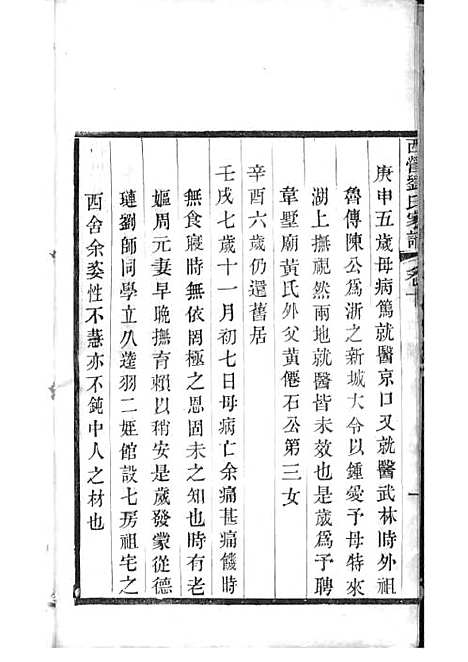 西營劉氏家譜 卷十
一
庚申五歲母病篤就醫京口又就醫武林時外祖
魯傳陳公爲浙之新城大令以鍾愛予母特來
湖上撫視然兩地就醫皆未效也是歲爲予聘
韋墅廟黃氏外父黃僊石公第三女
辛酉六歲仍還舊居
壬戌七歲十一月初七日母病亡余痛甚痛饑時
無食寢時無依罔極之恩固未之知也時有老
嫗周元妻早晚撫育賴以稍安是歲發蒙從德
璉劉師同學立八逵羽二姪館設七房祖宅之
西舍余姿性不慧亦不鈍中人之材也